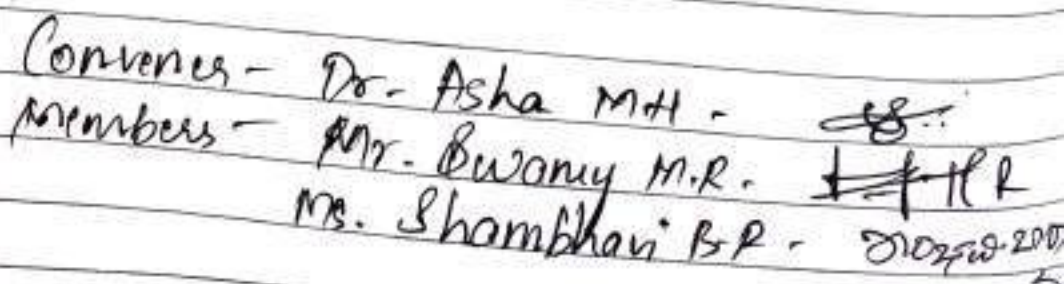 Convener - Dr. Asha M.H -
Members - Mr. Swamy M.R.
Ms. Shambhavi B.R -